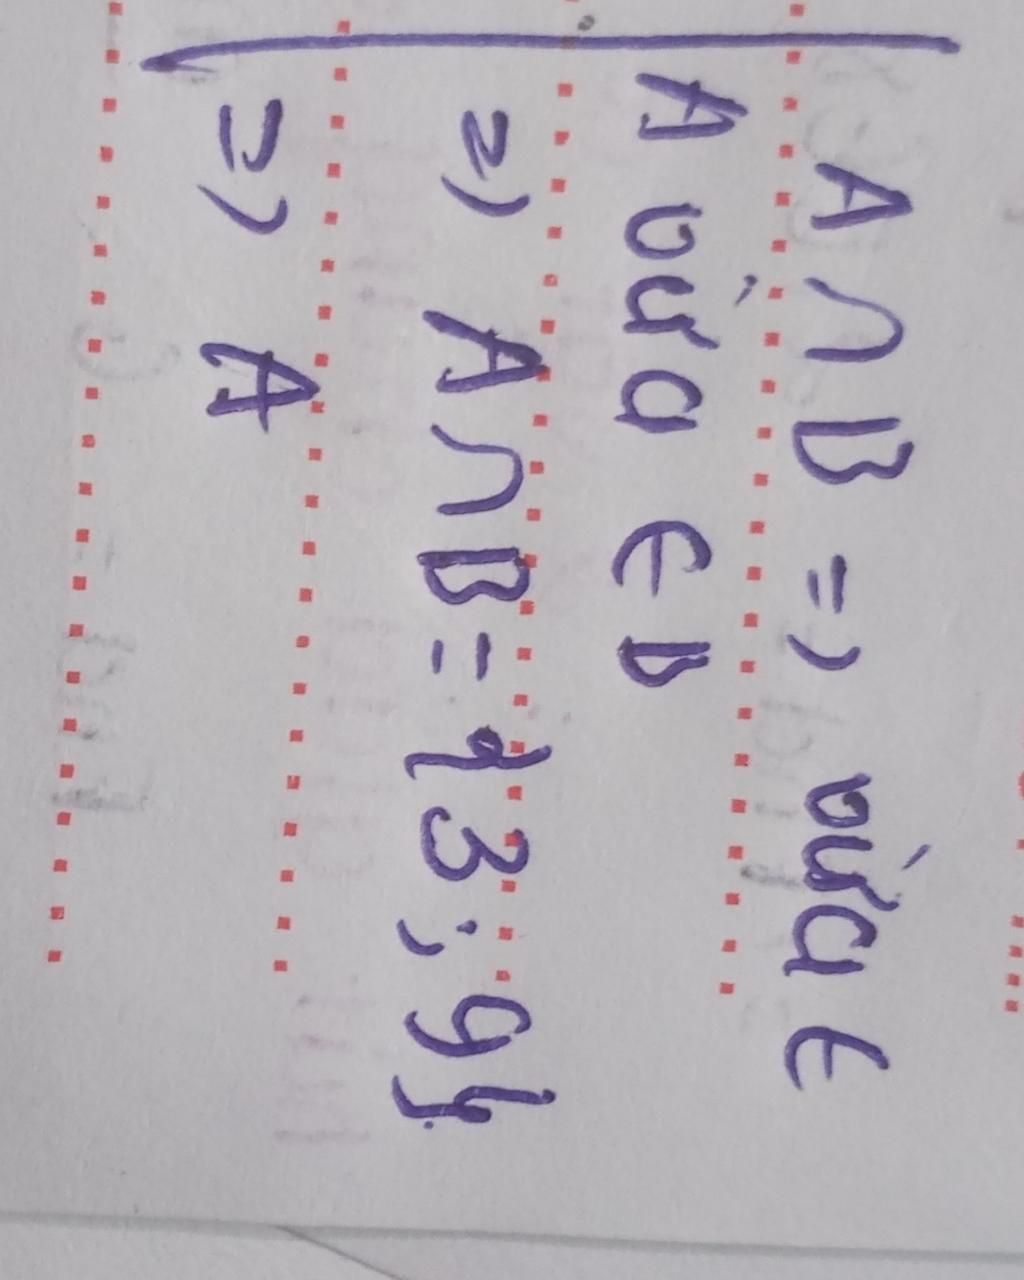 A ∩ B => vừa ∈
A vừa ∈ B
=> A ∩ B = { 3 ; 9 }
=> A